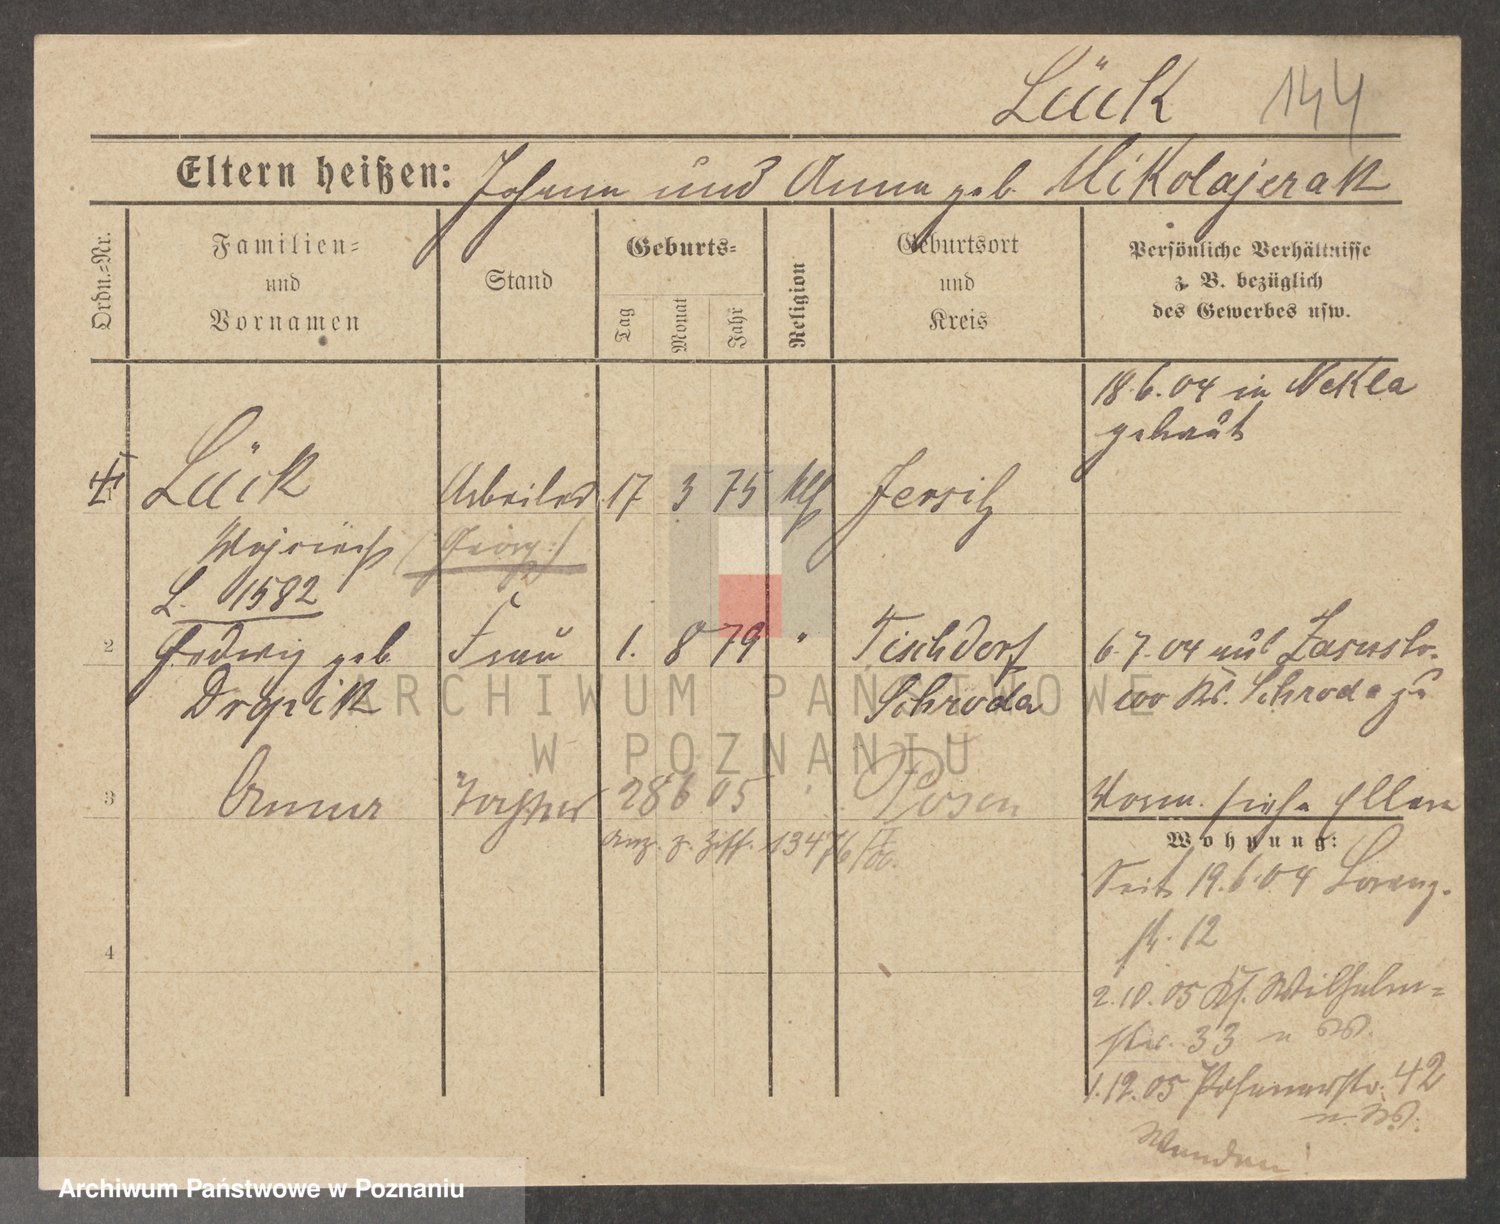 Lück 144
Eltern heißen: Johann und Anna geb. Mikolajerak
Ordn.=Nr.
Familien=
und
Vornamen
Stand
Geburts=
Tag
Monat
Jahr
Religion
Geburtsort
und
Kreis
Persönliche Verhältnisse
z. B. bezüglich
des Gewerbes usw.
18.6.04 in Nekla
getraut
Lück Arbeiter 17 3 75 kth Jersitz
(Georg)
L. 1582
2 Hedwig geb. Frau 1. 8 79 " Tischdorf 6.7.04 aus
Dropik Schroda Krs. Schroda zu
3 Anna Tochter 28 6 05 Posen Vorm. siehe Eltern
Anz. z. Ziff. 13476
Wohnung:
Seit 19.6.04 Lorenz-
str. 12
4
2.10.05 Wilhelm=
str. 33
1.12.05 42
ARCHIWUM PAŃSTWOWE
W POZNANIU
Archiwum Państwowe w Poznaniu